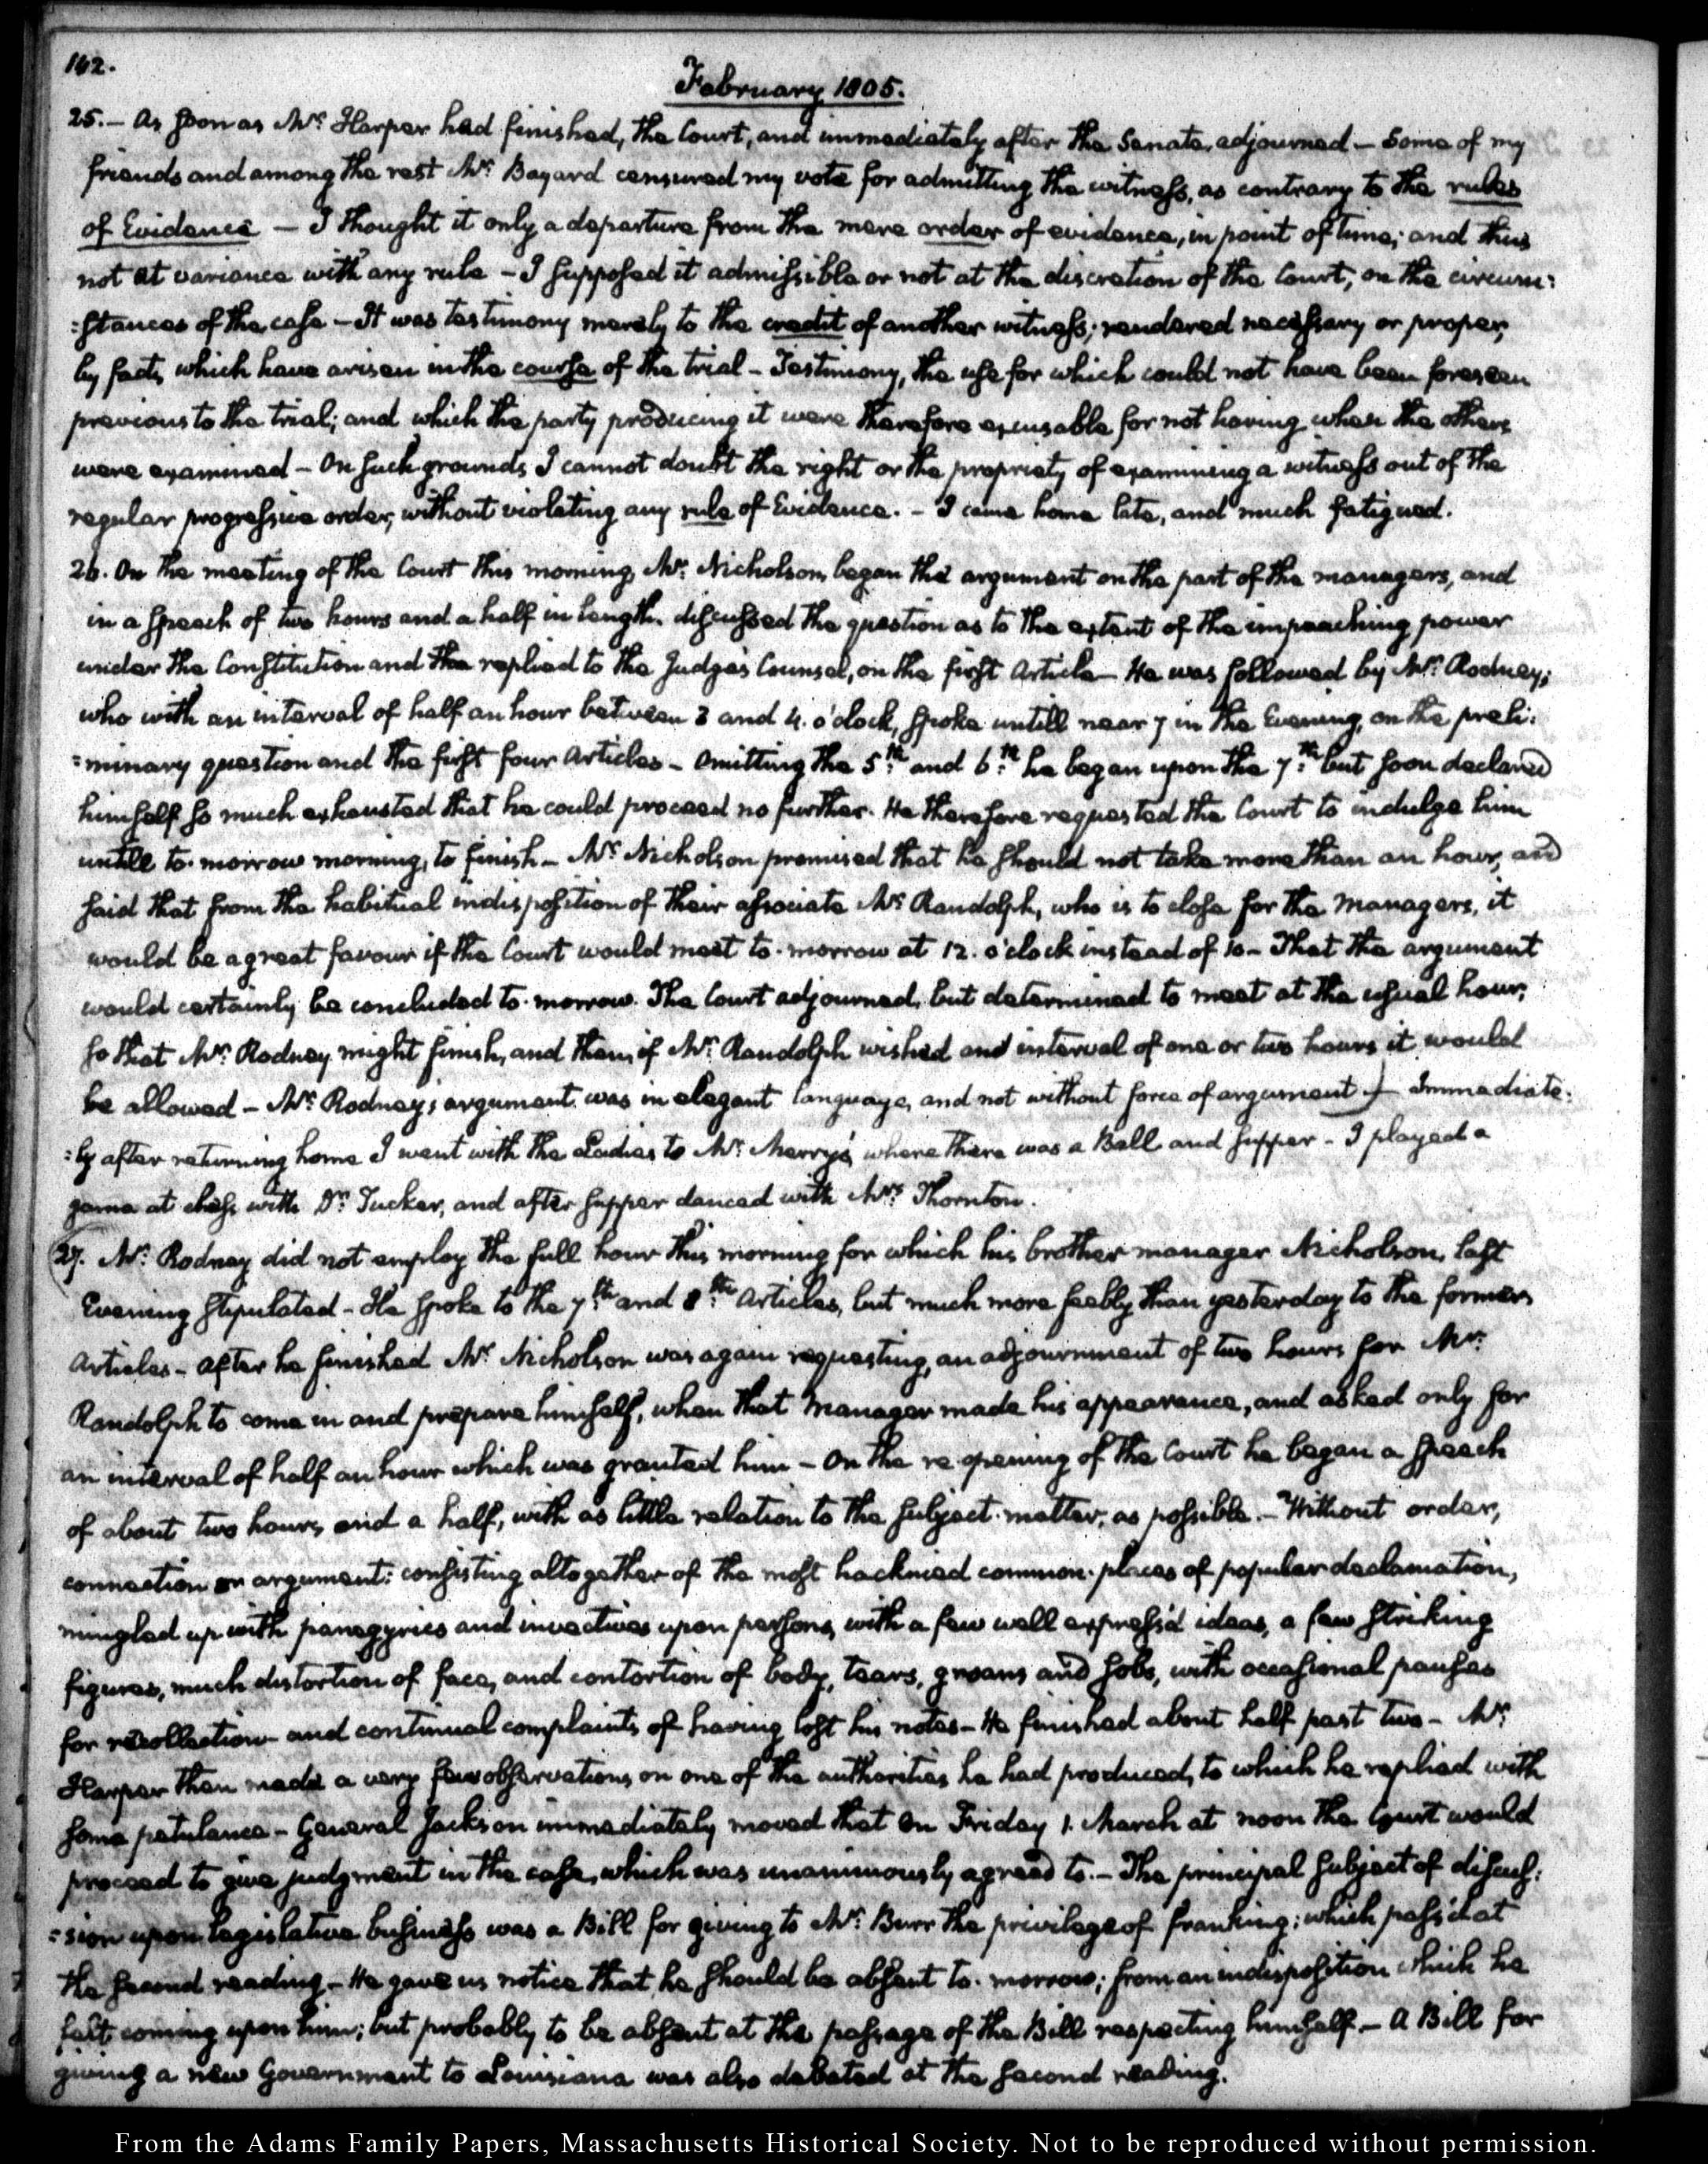 162.
February 1805.
25.— As soon as Mr. Harper had finished, the Court, and immediately after the Senate, adjourned — Some of my
friends and among the rest Mr. Bayard censured my vote for admitting the witness, as contrary to the rules
of Evidence — I thought it only a departure from the mere order of evidence, in point of time; and thus
not at variance with any rule — I supposed it admissible or not at the discretion of the Court, on the circum:
:stances of the case — It was testimony merely to the credit of another witness; rendered necessary or proper,
by facts, which have arisen in the course of the trial — Testimony, the use for which could not have been foreseen
previous to the trial; and which the party producing it were therefore excusable for not having when the others
were examined — On such grounds, I cannot doubt the right or the propriety of examining a witness out of the
regular progressive order, without violating any rule of Evidence. — I came home late, and much fatigued.
26. On the meeting of the Court this morning, Mr. Nicholson, began the argument on the part of the managers, and
in a speech of two hours and a half in length, discussed the question as to the extent of the impeaching power
under the Constitution and the replied to the Judge's Counsel, on the first Article — He was followed by Mr. Rodney;
who with an interval of half an hour between 3 and 4. o'clock, spoke untill near 7 in the Evening, on the preli:
:minary question and the first four Articles — Omitting the 5th. and 6th. he began upon the 7th. but soon declared
himself so much exhausted that he could proceed no further. He therefore requested the Court to indulge him
untill to-morrow morning, to finish — Mr. Nicholson promised that he should not take more than an hour, and
said that from the habitual indisposition of their associate Mr. Randolph, who is to close for the Managers, it
would be a great favour if the Court would meet to-morrow at 12. o'clock instead of 10 — That the argument
would certainly be concluded to-morrow. The Court adjourned, but determined to meet at the usual hour;
so that Mr. Rodney might finish, and then, if Mr. Randolph wished and interval of one or two hours it would
be allowed — Mr. Rodney's argument was in elegant language, and not without force of argument — Immediate:
:ly after returning home I went with the Ladies to Mr. Merry's where there was a Ball and supper — I played a
game at chess with Dr. Tucker, and after supper danced with Mrs. Thornton.
27. Mr. Rodney did not employ the full hour this morning for which his brother manager Nicholson, last
Evening stipulated — He spoke to the 7th. and 8th. Articles, but much more feebly than yesterday to the former
Articles — After he finished Mr. Nicholson was again requesting, an adjournment of two hours for Mr.
Randolph to come in and prepare himself, when that Manager made his appearance, and asked only for
an interval of half an hour which was granted him — On the re opening of the Court he began a speech
of about two hours and a half, with as little relation to the subject-matter, as possible. — Without order,
connection or argument: consisting altogether of the most hacknied common-places of popular declamation,
mingled up with panegyrics and invectives upon persons, with a few well express'd ideas, a few striking
figures, much distortion of face, and contortion of body, tears, groans and sobs, with occasional pauses
for recollection and continual complaints of having lost his notes — He finished about half past two — Mr.
Harper then made a very few observations on one of the authorities he had produced, to which he replied with
some petulance — General Jackson immediately moved that on Friday 1. March at noon the Court would
proceed to give judgment in the case, which was unanimously agreed to. — The principal subject of discus:
:sion upon legislative business was a Bill for giving to Mr. Burr the privilege of franking; which pass'd at
the second reading — He gave us notice that he should be absent to-morrow; from an indisposition which he
felt coming upon him; but probably to be absent at the passage of the Bill respecting himself — A Bill for
giving a new Government to Louisiana was also debated at the second reading.
From the Adams Family Papers, Massachusetts Historical Society. Not to be reproduced without permission.